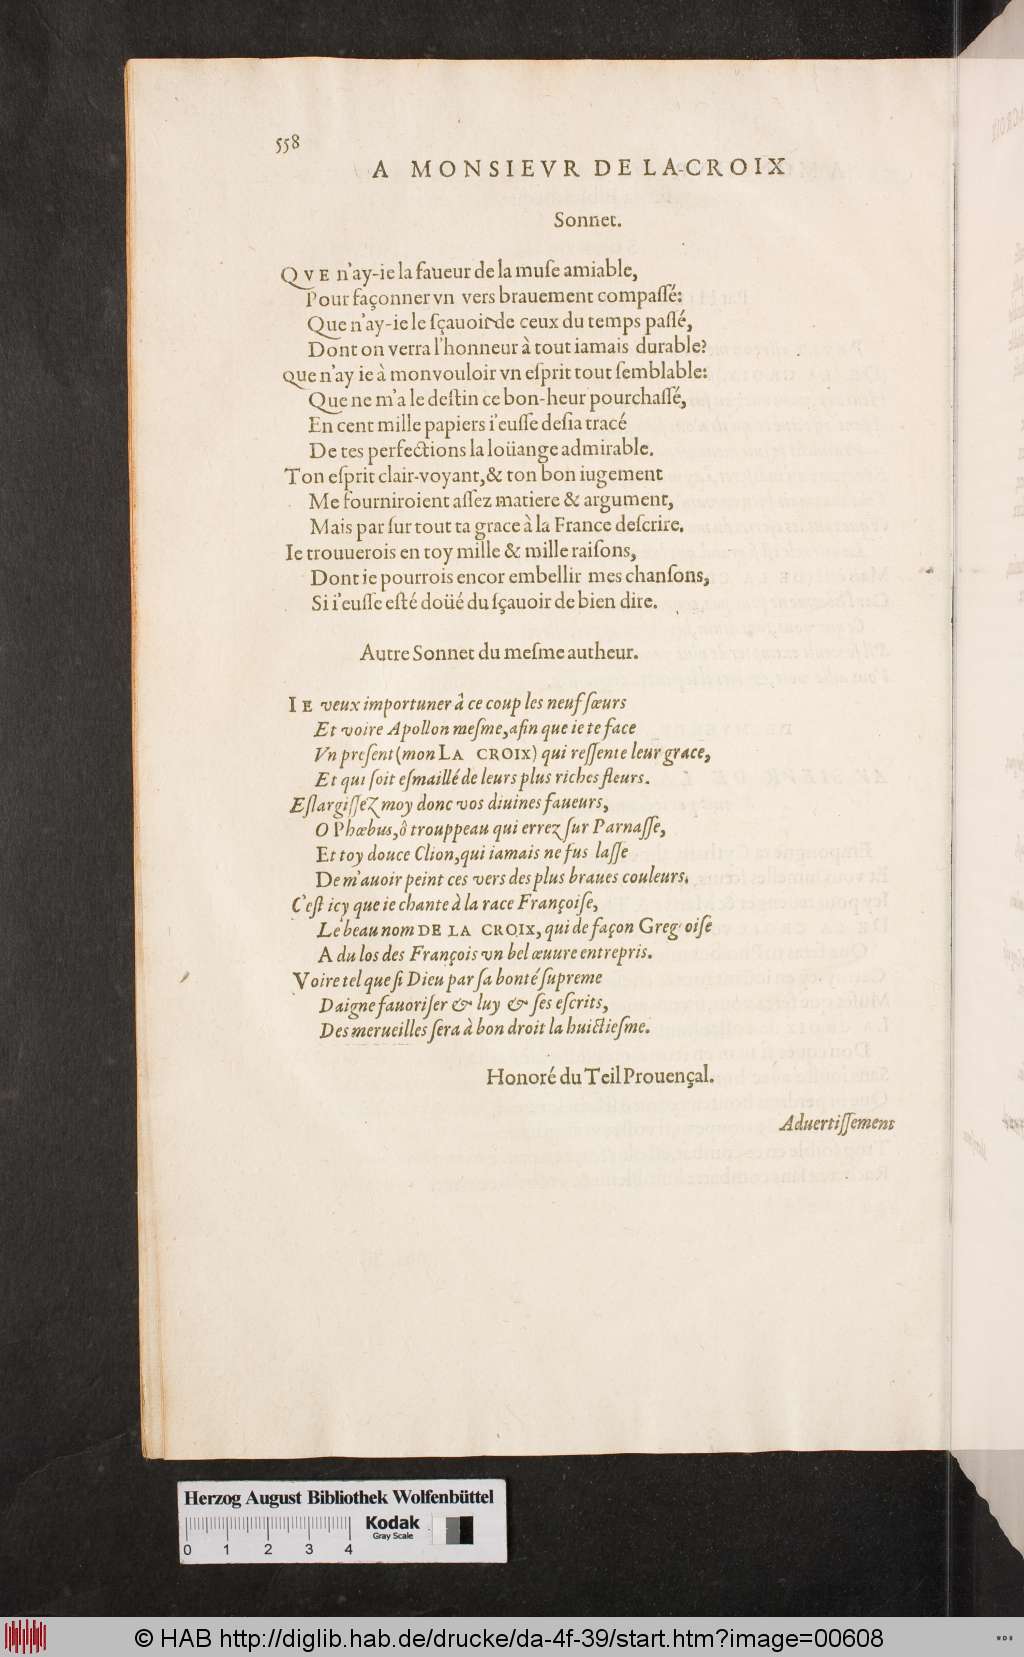 558
A MONSIEVR DE LA-CROIX
Sonnet.
QVE n'ay-ie la faueur de la muſe amiable,
Pour façonner vn vers brauement compaſſé:
Que n'ay-ie le ſçauoir de ceux du temps paſſé,
Dont on verra l'honneur à tout iamais durable?
Que n'ay ie à mon vouloir vn eſprit tout ſemblable:
Que ne m'a le deſtin ce bon-heur pourchaſſé,
En cent mille papiers i'euſſe deſia tracé
De tes perfections la loüange admirable.
Ton eſprit clair-voyant, & ton bon iugement
Me fourniroient aſſez matiere & argument,
Mais par ſur tout ta grace à la France deſcrire.
Ie trouuerois en toy mille & mille raiſons,
Dont ie pourrois encor embellir mes chanſons,
Si i'euſſe eſté doüé du ſçauoir de bien dire.
Autre Sonnet du meſme autheur.
IE veux importuner à ce coup les neuf ſœurs
Et voire Apollon meſme, afin que ie te face
Vn preſent (mon LA CROIX) qui reſſente leur grace,
Et qui ſoit eſmaillé de leurs plus riches fleurs.
Eſlargiſſez moy donc vos diuines faueurs,
O Phœbus, ô trouppeau qui errez ſur Parnaſſe,
Et toy douce Clion, qui iamais ne fus laſſe
De m'auoir peint ces vers des plus braues couleurs.
C'eſt icy que ie chante à la race Françoiſe,
Le beau nom DE LA CROIX, qui de façon Greg oiſe
A du los des François vn bel œuure entrepris.
Voire tel que ſi Dieu par ſa bonté ſupreme
Daigne fauoriſer & luy & ſes eſcrits,
Des merueilles ſera à bon droit la huictieſme.
Honoré du Teil Prouençal.
Aduertiſſement
Herzog August Bibliothek Wolfenbüttel
Kodak
Gray Scale
0 1 2 3 4
© HAB http://diglib.hab.de/drucke/da-4f-39/start.htm?image=00608